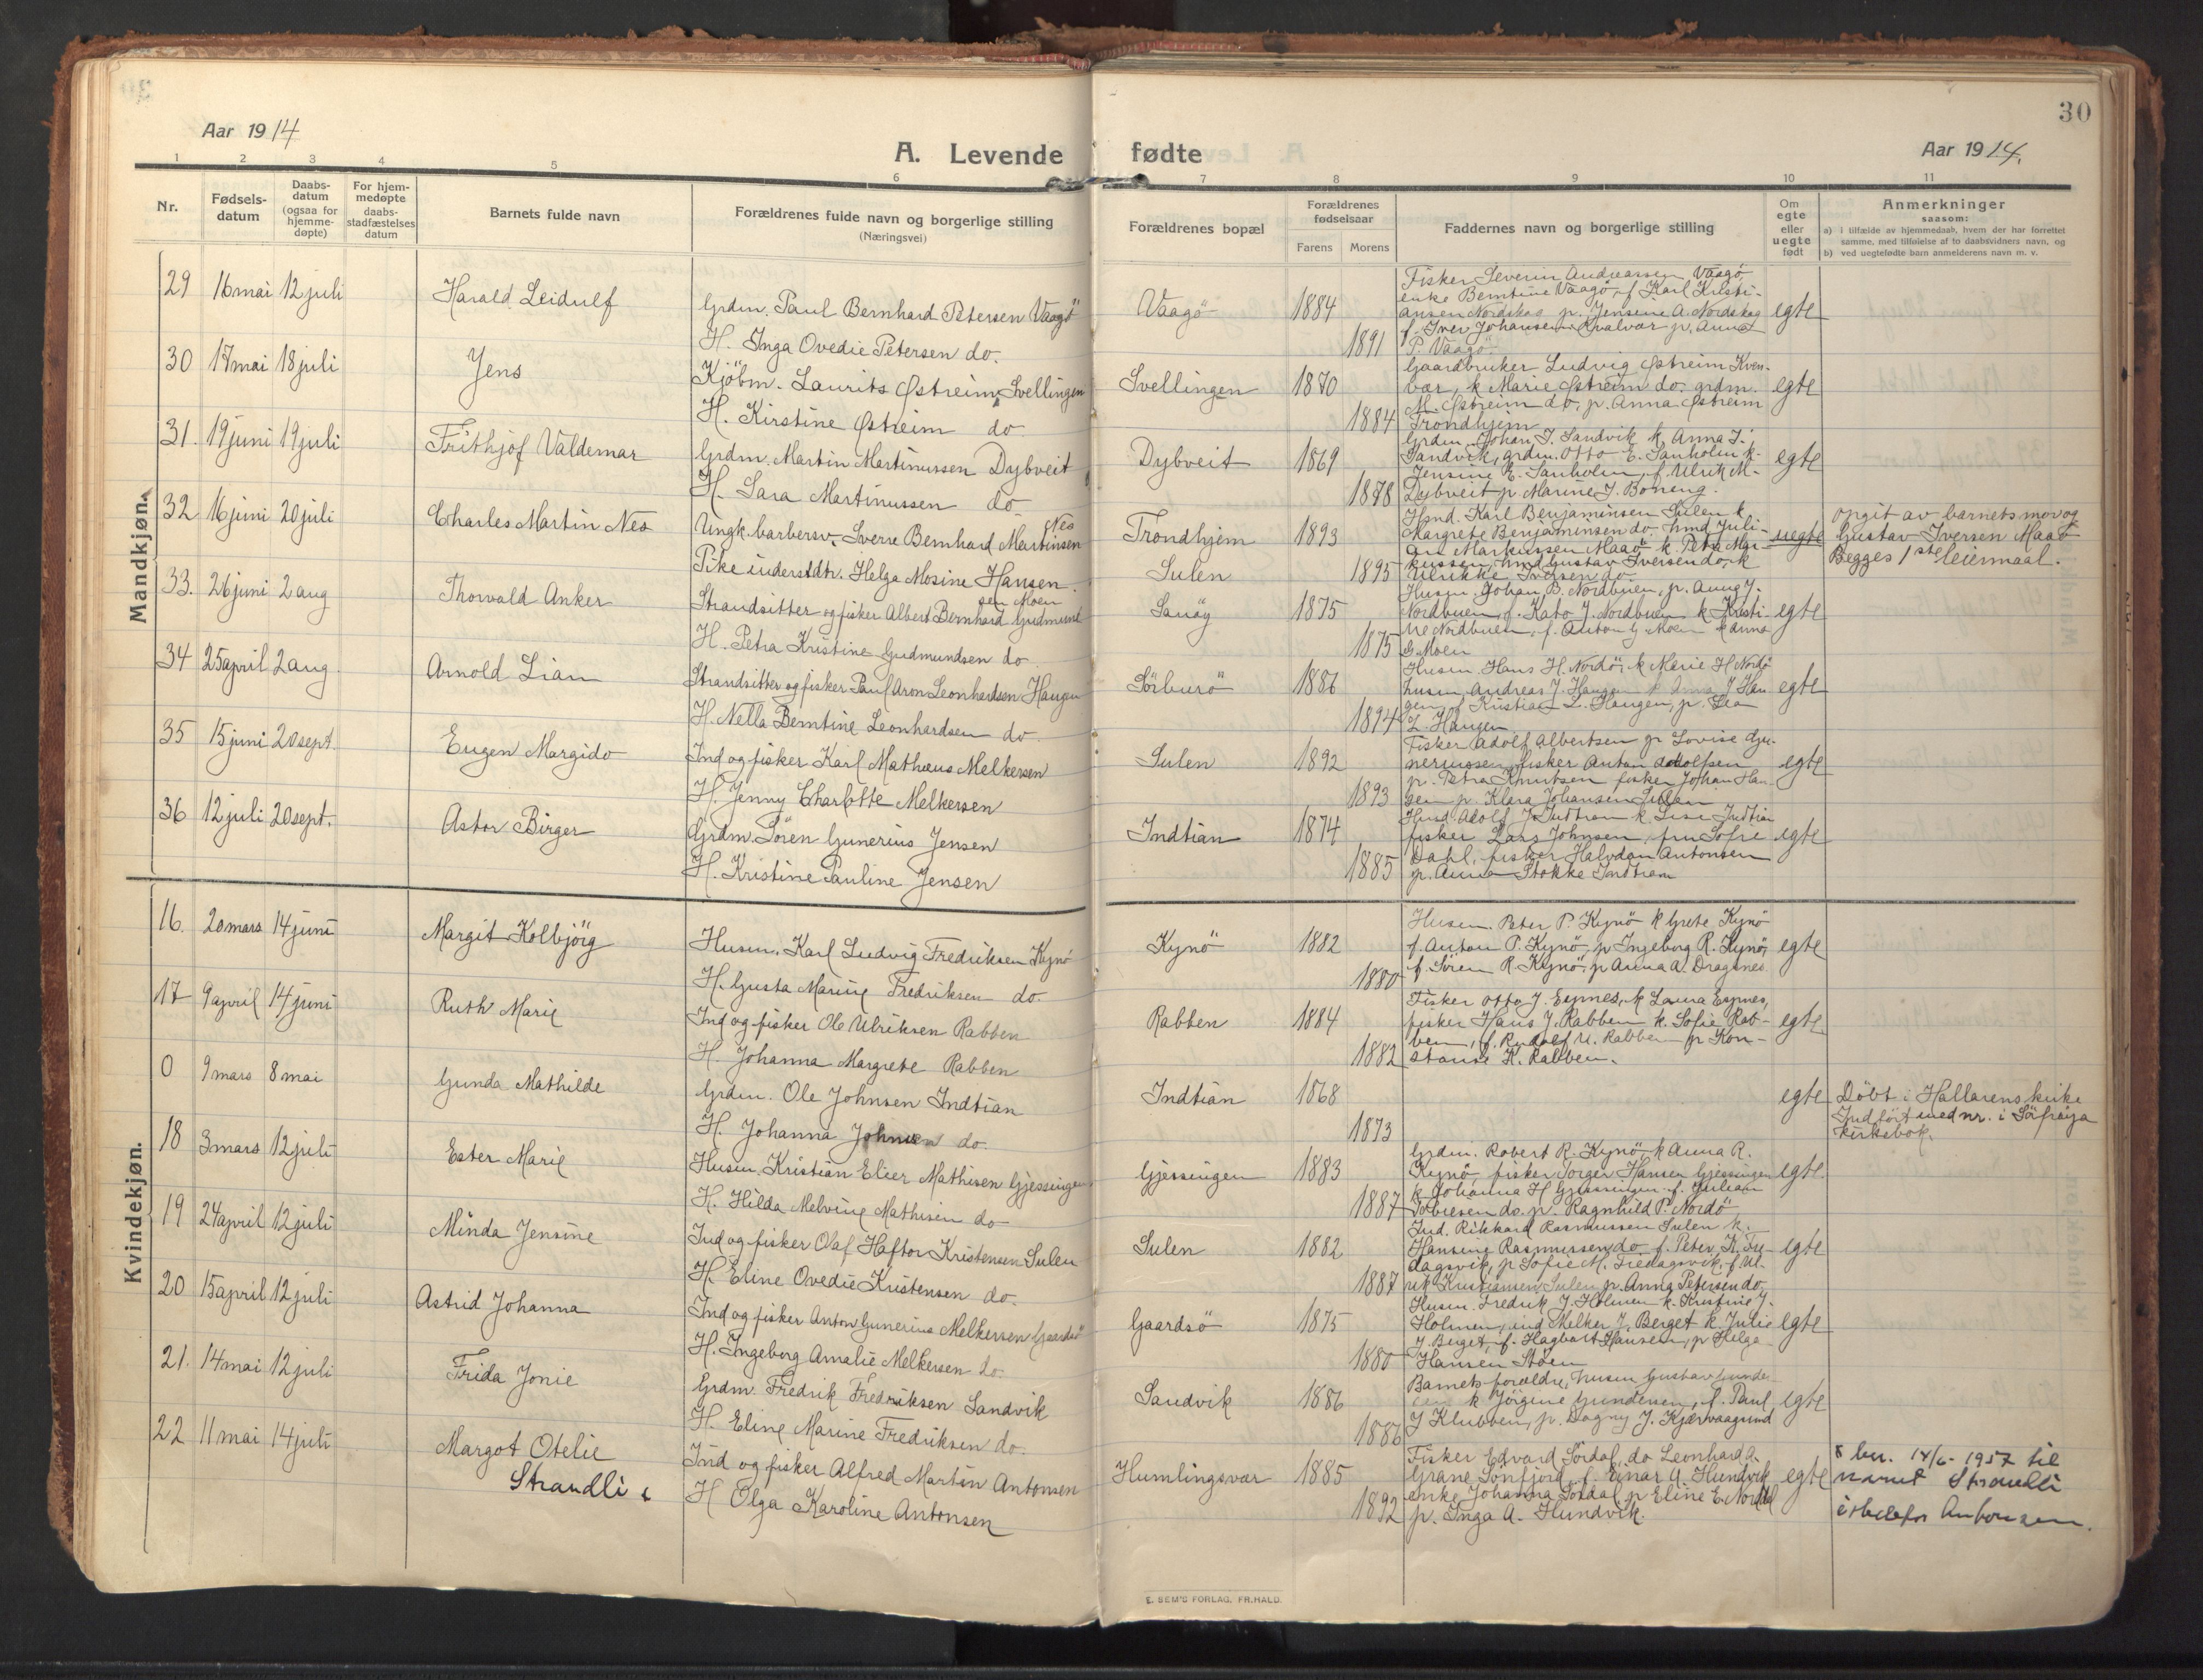 30
Aar 1914
A. Levende fødte
Aar 1914.
1 2 3 4 5 6 7 8 9 10 11
Nr.
Fødsels-
datum
Daabs-
datum
(ogsaa for
hjemme-
døpte)
For hjem-
medøpte
daabs-
stadfæstelses
datum
Barnets fulde navn
Forældrenes fulde navn og borgerlige stilling
(Næringsvei)
Forældrenes bopæl
Forældrenes
fødselsaar
Farens Morens
Faddernes navn og borgerlige stilling
Om
egte
eller
uegte
født
Anmerkninger
saasom:
a) i tilfælde av hjemmedaab, hvem der har forrettet
samme, med tilføielse af to daabsvidners navn, og
b) ved uegtefødte barn anmelderens navn m. v.
Mandkjøn.
29 16 mai 12 juli Harald Leidulf
Grdm. Paul Bernhard Petersen Vaagö
H. Inga Ovedie Petersen do.
Vaagö 1884 1891
Fisker Severin Andreassen Vaagö
enke Berntine Vaagö, f Karl Kristi-
ansen Nordskag p. Jensine A. Nordskag
f. Iver Johansen Kvalvær p. Anna
P. Vaagö
egte
30 17 mai 18 juli Jens
Kjöbm. Laurits Østreim Svellingen
H. Kirstine Østreim do
Svellingen 1870 1884
Gaardbruker Ludvig Østreim Kven-
vær, k Marie Østreim do. grdm.
M. Østreim do, p. Anna Østreim
Trondhjem
egte
31. 19 juni 19 juli Frithjof Valdemar
Grdm. Martin Martinussen Dybveit
H. Sara Martinussen do
Dybveit 1869 1878
Grdm. Johan J. Sandvik k. Anna J.
Sandvik, grdm. Otto E. Sanholm k.
Jensine E. Sanholm, f. Ulrik M.
Dybveit p Marine J. Boneng.
egte
32 16 juni 20 juli Charles Martin Nes
Ungk. barbersv. Sverre Bernhard Martinsen Nes
Pike inderstdtr. Helga Mosine Hansen.
Trondhjem 1893
Sulen 1895
Hmd. Karl Benjaminsen Sulen k
Margrete Benjaminsen do. hmd Juli-
an Markussen Maaö k. Petra Mar-
kussen, hmd Gustav Iversen do, k
Ulrikke Iversen do.
uegte
opgit av barnets mor og
Gustav Iversen Maaö
Begges 1ste leiermaal.
33. 26 juni 2 aug Thorvald Anker
Strandsitter og fisker Albert Bernhard Gudmund
sen Moen
H. Petra Kristine Gudmundsen do
Sanöy 1875 1875
Husm. Johan B. Nordbuen, p. Anna J.
Nordbuen, f. Kato J. Nordbuen k Kristi-
ne Nordbuen, f. Anton G Moen k Anna
G. Moen
egte
34 25 april 2 aug. Arnold Lian
Strandsitter og fisker Paul Aron Leonhardsen Haugen
H. Nella Berntine Leonhardsen do
Sörburö 1886 1894
Husm. Hans H. Nordö, k Marie H Nordö
husm. Andreas J. Haugen k Anna J Hau
gen, f Kristian L. Haugen, p. Lea
L. Haugen
egte
35 15 juni 20 sept. Eugen Margido
Ind og fisker Karl Mathæus Melkersen
H. Jenny Charlotte Melkersen
Sulen 1892 1893
Fisker Adolf Albertsen p Lovise Gju-
nerussen, fisker Anton Adolfsen
p. Petra Knutsen fisker Johan Han
sen p. Klara Johansen Sulen
egte
36 12 juli 20 sept. Astor Birger
Grdm. Sören Gunerius Jensen
H. Kristine Pauline Jensen
Indtian 1874 1885
Husm. Adolf J. Indtian k. Lise Indtian
fisker Lars Johnsen, fru Sofie
Dahl, fisker Halvdan Antonsen
p. Anna Stokke Indtian
egte
Kvindekjøn.
16. 20 mars 14 juni Margit Kolbjörg
Husm. Karl Ludvig Fredriksen Kynö
H. Gusta Marine Fredriksen do.
Kynö 1882 1880
Husm. Peter P. Kynö k Grete Kynö
f. Anton P. Kynö, p Ingeborg R. Kynö,
f. Sören R. Kynö, p Anna A. Dragsnes.
egte
17 9 april 14 juni Ruth Marie
Ind og fisker Ole Ulriksen Rabben
H. Johanna Margrete Rabben
Rabben 1884 1882
Fisker Otto J. Espnes, k Laura Espnes,
fisker Hans J. Rabben k. Sofie Rab-
ben, f. Rudolf U. Rabben p Kon-
stanse K. Rabben.
egte
0 9 mars 8 mai Gunda Mathilde
Grdm. Ole Johnsen Indtian
H. Johanna Johnsen do.
Indtian 1868 1873
egte
Döbt i Hallarens kirke
Indfört med nr. i Sörfröya
kirkebok.
18 3 mars 12 juli Ester Marie
Husm. Kristian Elier Mathisen Gjessingen
H. Hilda Melvine Mathisen do
Gjessingen 1883 1887
Grdm. Robert R. Kynö, k Anna R.
Kynö, fisker Torger Hansen Gjessingen
k Johanna H Gjessingen. f. Julian
Tobiesen do. p. Ragnhild P. Nordö
egte.
19 24 april 12 juli Minda Jensine
Ind og fisker Olaf Hafton Kristensen Sulen
H. Eline Ovedie Kristensen do.
Sulen 1882 1887
Ind. Rikkard Rasmussen Sulen k.
Hansine Rasmussen do f. Peter K. Fre-
dagsvik, p Sofie M. Fredagsvik, f Ul-
rik Kristiansen Sulen p. Anna Petersen do.
egte
20 15 april 12 juli Astrid Johanna
Ind og fisker Anton Gunerius Melkersen Gaardsö
H. Ingeborg Amalie Melkersen do.
Gaardsö 1875 1880
Husm. Fredrik J. Holmen k. Kristine J.
Holmen, ind Melker J. Berget k. Julie
J. Berget, f. Hagbart Hansen, p Helga
Hansen Stöen
egte
21. 14 mai 12 juli Frida Jonie
Grdm. Fredrik Fredriksen Sandvik
H. Eline Marine Fredriksen do.
Sandvik 1886 1886
Barnets forældre, husm Gustav Gunde
sen k Jörgine Gundersen, f. Paul
J Klubben, p. Dagny J. Kjærvaagsund
egte
22 11 mai 14 juli Margot Otelie
Strandli
Ind og fisker Alfred Martin Antonsen
H Olga Karoline Antonsen
Humlingsvær 1885 1892
Fisker Edvard Sördal, do Leonhard A.
Grane Sönfjord, f. Einar A. Hundvik
enke Johanna Sördal, p Eline E. Norddal
p. Inga A. Hundvik.
egte
bev. 14/6-1957 til
navnet Strandli
istedetfor Antonsen.
E. SEM'S FORLAG, FR.HALD.